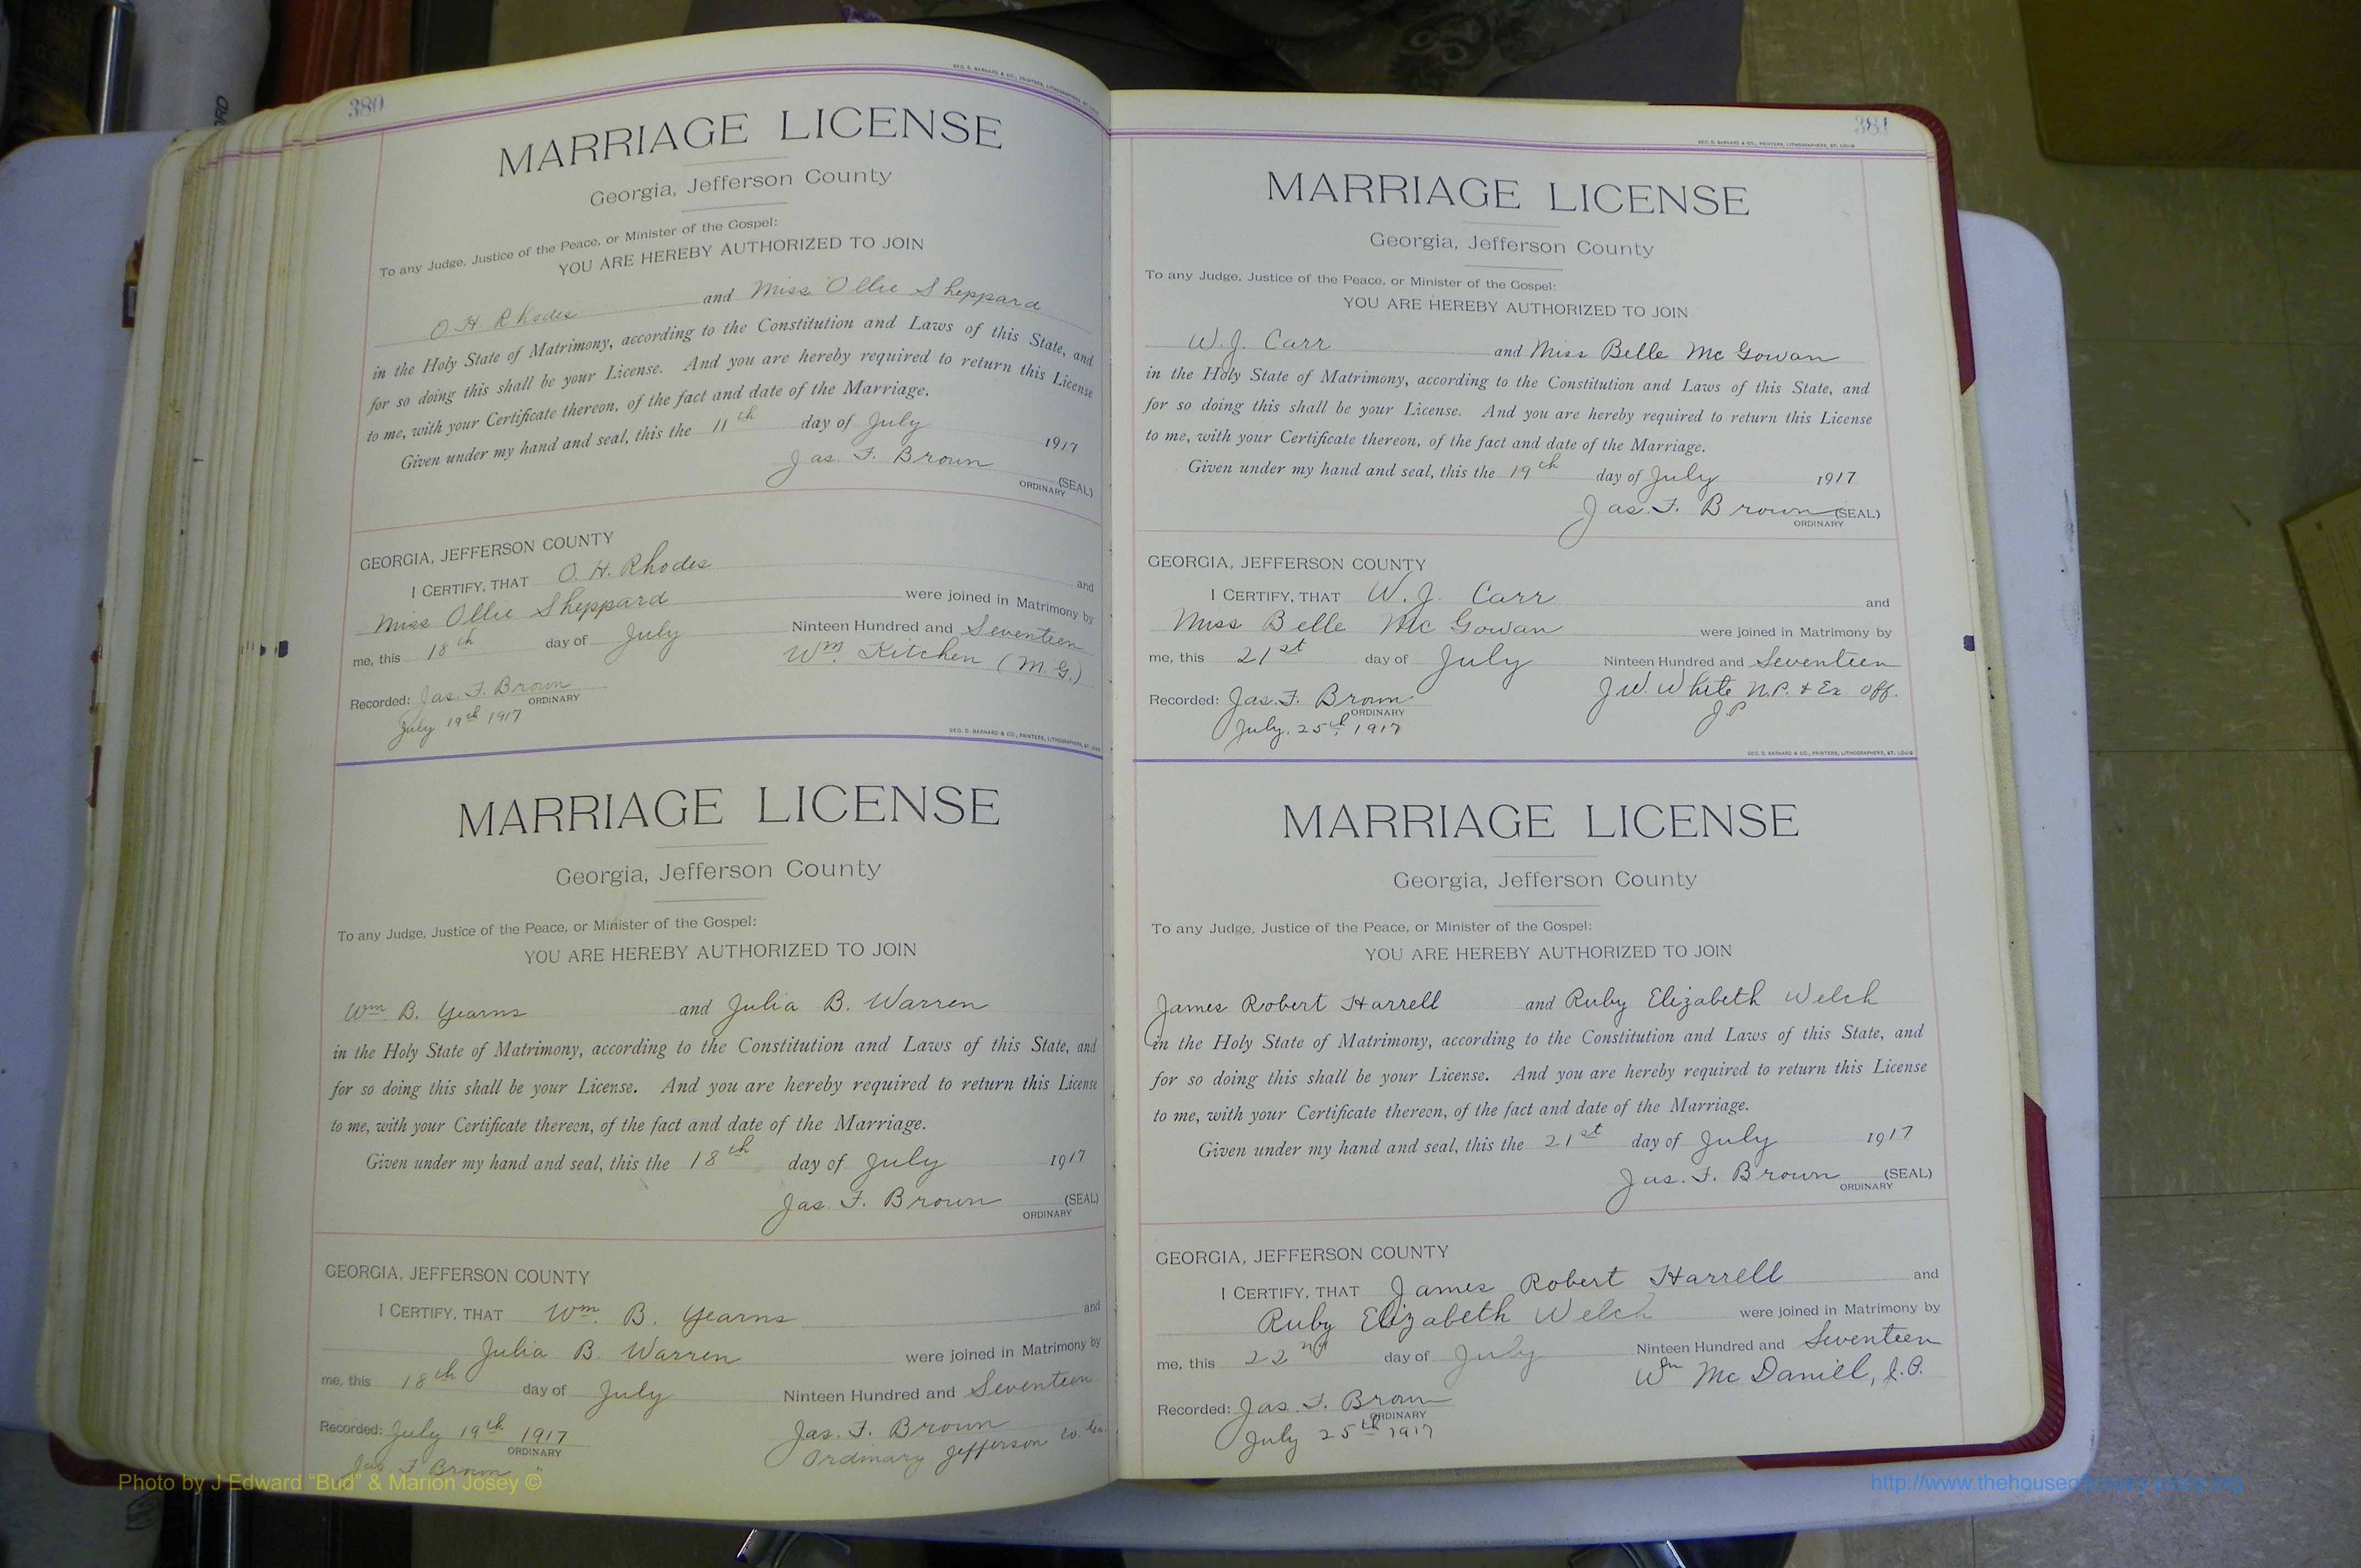 380
GEO. D. BARNARD & CO., PRINTERS, LITHOGRAPHERS, ST. LOUIS
MARRIAGE LICENSE
Georgia, Jefferson County
To any Judge, Justice of the Peace, or Minister of the Gospel:
YOU ARE HEREBY AUTHORIZED TO JOIN
O H Rhodes and Miss Ollie Sheppard
in the Holy State of Matrimony, according to the Constitution and Laws of this State, and
for so doing this shall be your License. And you are hereby required to return this License
to me, with your Certificate thereon, of the fact and date of the Marriage.
Given under my hand and seal, this the 11th day of July 1917
Jas. F. Brown (SEAL)
ORDINARY
GEORGIA, JEFFERSON COUNTY
I CERTIFY, THAT O. H. Rhodes and
Miss Ollie Sheppard were joined in Matrimony by
me, this 18th day of July Ninteen Hundred and Seventeen
Wm. Kitchen (M.G.)
Recorded: Jas. F. Brown
ORDINARY
July 19th 1917
GEO. D. BARNARD & CO., PRINTERS, LITHOGRAPHERS, ST. LOUIS
MARRIAGE LICENSE
Georgia, Jefferson County
To any Judge, Justice of the Peace, or Minister of the Gospel:
YOU ARE HEREBY AUTHORIZED TO JOIN
Wm B. Yearns and Julia B. Warren
in the Holy State of Matrimony, according to the Constitution and Laws of this State, and
for so doing this shall be your License. And you are hereby required to return this License
to me, with your Certificate thereon, of the fact and date of the Marriage.
Given under my hand and seal, this the 18th day of July 1917
Jas. F. Brown (SEAL)
ORDINARY
GEORGIA, JEFFERSON COUNTY
I CERTIFY, THAT Wm. B. Yearns and
Julia B. Warren were joined in Matrimony by
me, this 18th day of July Ninteen Hundred and Seventeen
Recorded: July 19th 1917 Jas. F. Brown
ORDINARY
Jas F Brown " Ordinary Jefferson Co. Ga.
381
GEO. D. BARNARD & CO., PRINTERS, LITHOGRAPHERS, ST. LOUIS
MARRIAGE LICENSE
Georgia, Jefferson County
To any Judge, Justice of the Peace, or Minister of the Gospel:
YOU ARE HEREBY AUTHORIZED TO JOIN
W. J. Carr and Miss Belle McGowan
in the Holy State of Matrimony, according to the Constitution and Laws of this State, and
for so doing this shall be your License. And you are hereby required to return this License
to me, with your Certificate thereon, of the fact and date of the Marriage.
Given under my hand and seal, this the 19th day of July 1917
Jas. F. Brown (SEAL)
ORDINARY
GEORGIA, JEFFERSON COUNTY
I CERTIFY, THAT W. J. Carr and
Miss Belle McGowan were joined in Matrimony by
me, this 21st day of July Ninteen Hundred and Seventeen
Recorded: Jas. F. Brown J W. White N.P. & Ex Off.
ORDINARY J.P
July. 25th, 1917
GEO. D. BARNARD & CO., PRINTERS, LITHOGRAPHERS, ST. LOUIS
MARRIAGE LICENSE
Georgia, Jefferson County
To any Judge, Justice of the Peace, or Minister of the Gospel:
YOU ARE HEREBY AUTHORIZED TO JOIN
James Robert Harrell and Ruby Elizabeth Welch
in the Holy State of Matrimony, according to the Constitution and Laws of this State, and
for so doing this shall be your License. And you are hereby required to return this License
to me, with your Certificate thereon, of the fact and date of the Marriage.
Given under my hand and seal, this the 21st day of July 1917
Jas. F. Brown (SEAL)
ORDINARY
GEORGIA, JEFFERSON COUNTY
I CERTIFY, THAT James Robert Harrell and
Ruby Elizabeth Welch were joined in Matrimony by
me, this 22nd day of July Ninteen Hundred and Seventeen
Wm McDaniel, J.P.
Recorded: Jas. F. Brown
ORDINARY
July 25th 1917
Photo by J Edward “Bud” & Marion Josey ©